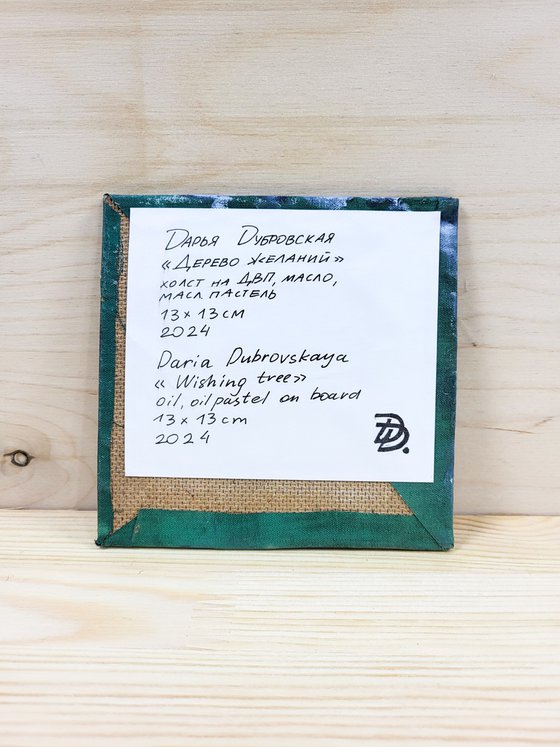 Дарья Дубровская
«Дерево желаний»
холст на ДВП, масло,
масл пастель
13 х 13 см
2024
Daria Dubrovskaya
« Wishing tree»
oil, oil pastel on board
13 x 13 cm
2024
DD.